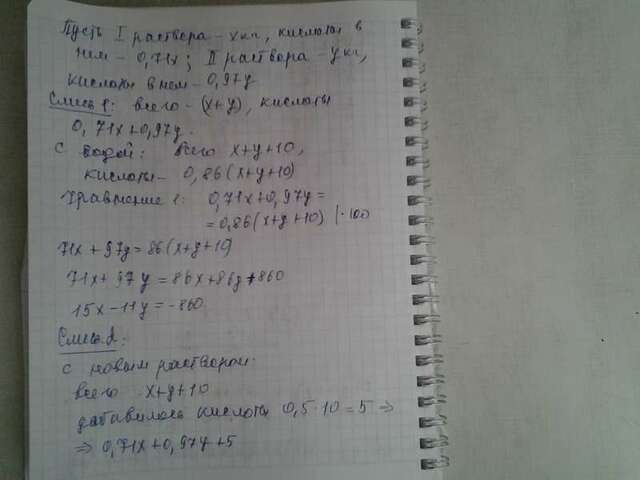 Пусть I раствора - x кг, кислоты в
нем - 0,71x; II раствора - y кг,
кислоты в нем - 0,97y
Смесь 1: всего - (x+y), кислоты
0,71x+0,97y.
с водой: всего x+y+10,
кислоты - 0,86(x+y+10)
Уравнение 1: 0,71x+0,97y=
=0,86(x+y+10) |·100
71x+97y=86(x+y+10)
71x+97y=86x+86y+860
15x-11y=-860
Смесь 2:
с новым раствором:
всего x+y+10
добавилось кислоты 0,5·10=5 ⇒
⇒ 0,71x+0,97y+5